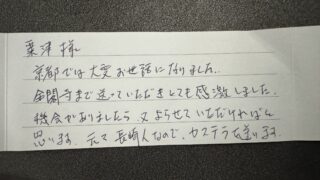 粟津 様
京都では大変お世話になりました。
金閣寺まで送っていただきとても感激しました。
機会がありましたら 又 よらせていただければと
思います。元々 長崎人なので、カステラを送ります。